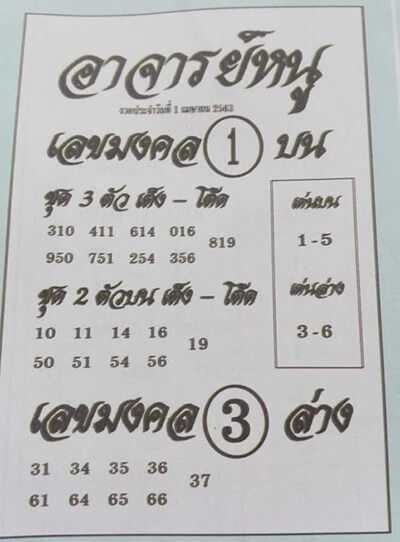 อาจารย์หนู
งวดประจำวันที่ 1 เมษายน 2563
เลขมงคล 1 บน
ชุด 3 ตัว เต็ง - โต๊ด
310 411 614 016
819
950 751 254 356
เด่นบน
1-5
ชุด 2 ตัวบน เต็ง - โต๊ด
10 11 14 16
19
50 51 54 56
เด่นล่าง
3-6
เลขมงคล 3 ล่าง
31 34 35 36
37
61 64 65 66